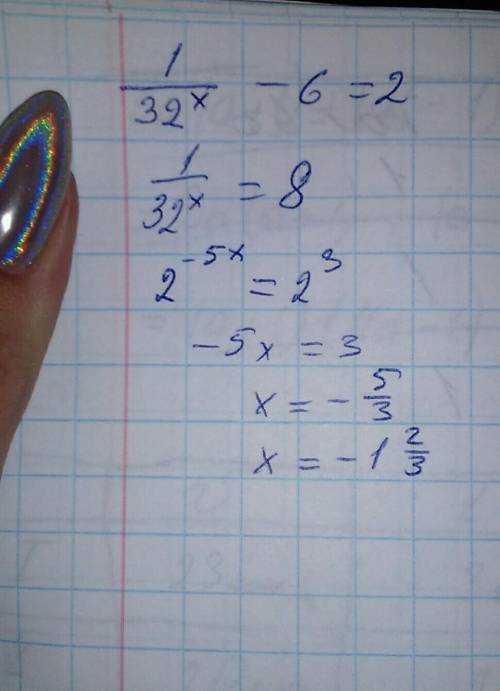 1/32^x - 6 = 2
1/32^x = 8
2^-5x = 2^3
-5x = 3
x = - 5/3
x = -1 2/3